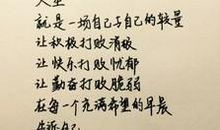 人生
就是一场自己与自己的较量
让积极打败消极
让快乐打败忧郁
让勤奋打败脆弱
在每一个充满希望的早晨
告诉自己